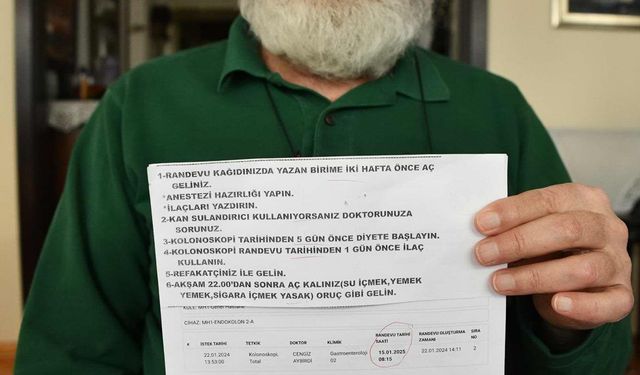 1-RANDEVU KAĞIDINIZDA YAZAN BİRİME İKİ HAFTA ÖNCE AÇ
GELİNİZ.
*ANESTEZİ HAZIRLIĞI YAPIN.
*İLAÇLARI YAZDIRIN.
2-KAN SULANDIRICI KULLANIYORSANIZ DOKTORUNUZA
SORUNUZ.
3-KOLONOSKOPİ TARİHİNDEN 5 GÜN ÖNCE DİYETE BAŞLAYIN.
4-KOLONOSKOPİ RANDEVU TARİHİNDEN 1 GÜN ÖNCE İLAÇ
KULLANIN.
5-REFAKATÇİNİZ İLE GELİN.
6-AKŞAM 22.00'DAN SONRA AÇ KALINIZ(SU İÇMEK,YEMEK
YEMEK,SİGARA İÇMEK YASAK) ORUÇ GİBİ GELİN.
CİHAZ: MH1-ENDOKOLON 2-A
# İSTEK TARİHİ TETKİK DOKTOR KLİNİK RANDEVU TARİHİ SAATİ RANDEVU OLUŞTURMA ZAMANI SIRA NO
1 22.01.2024 13:53:00 Kolonoskopi, Total CENGİZ AYBİRDİ Gastroenteroloji 02 15.01.2025 08:15 22.01.2024 14:11 2